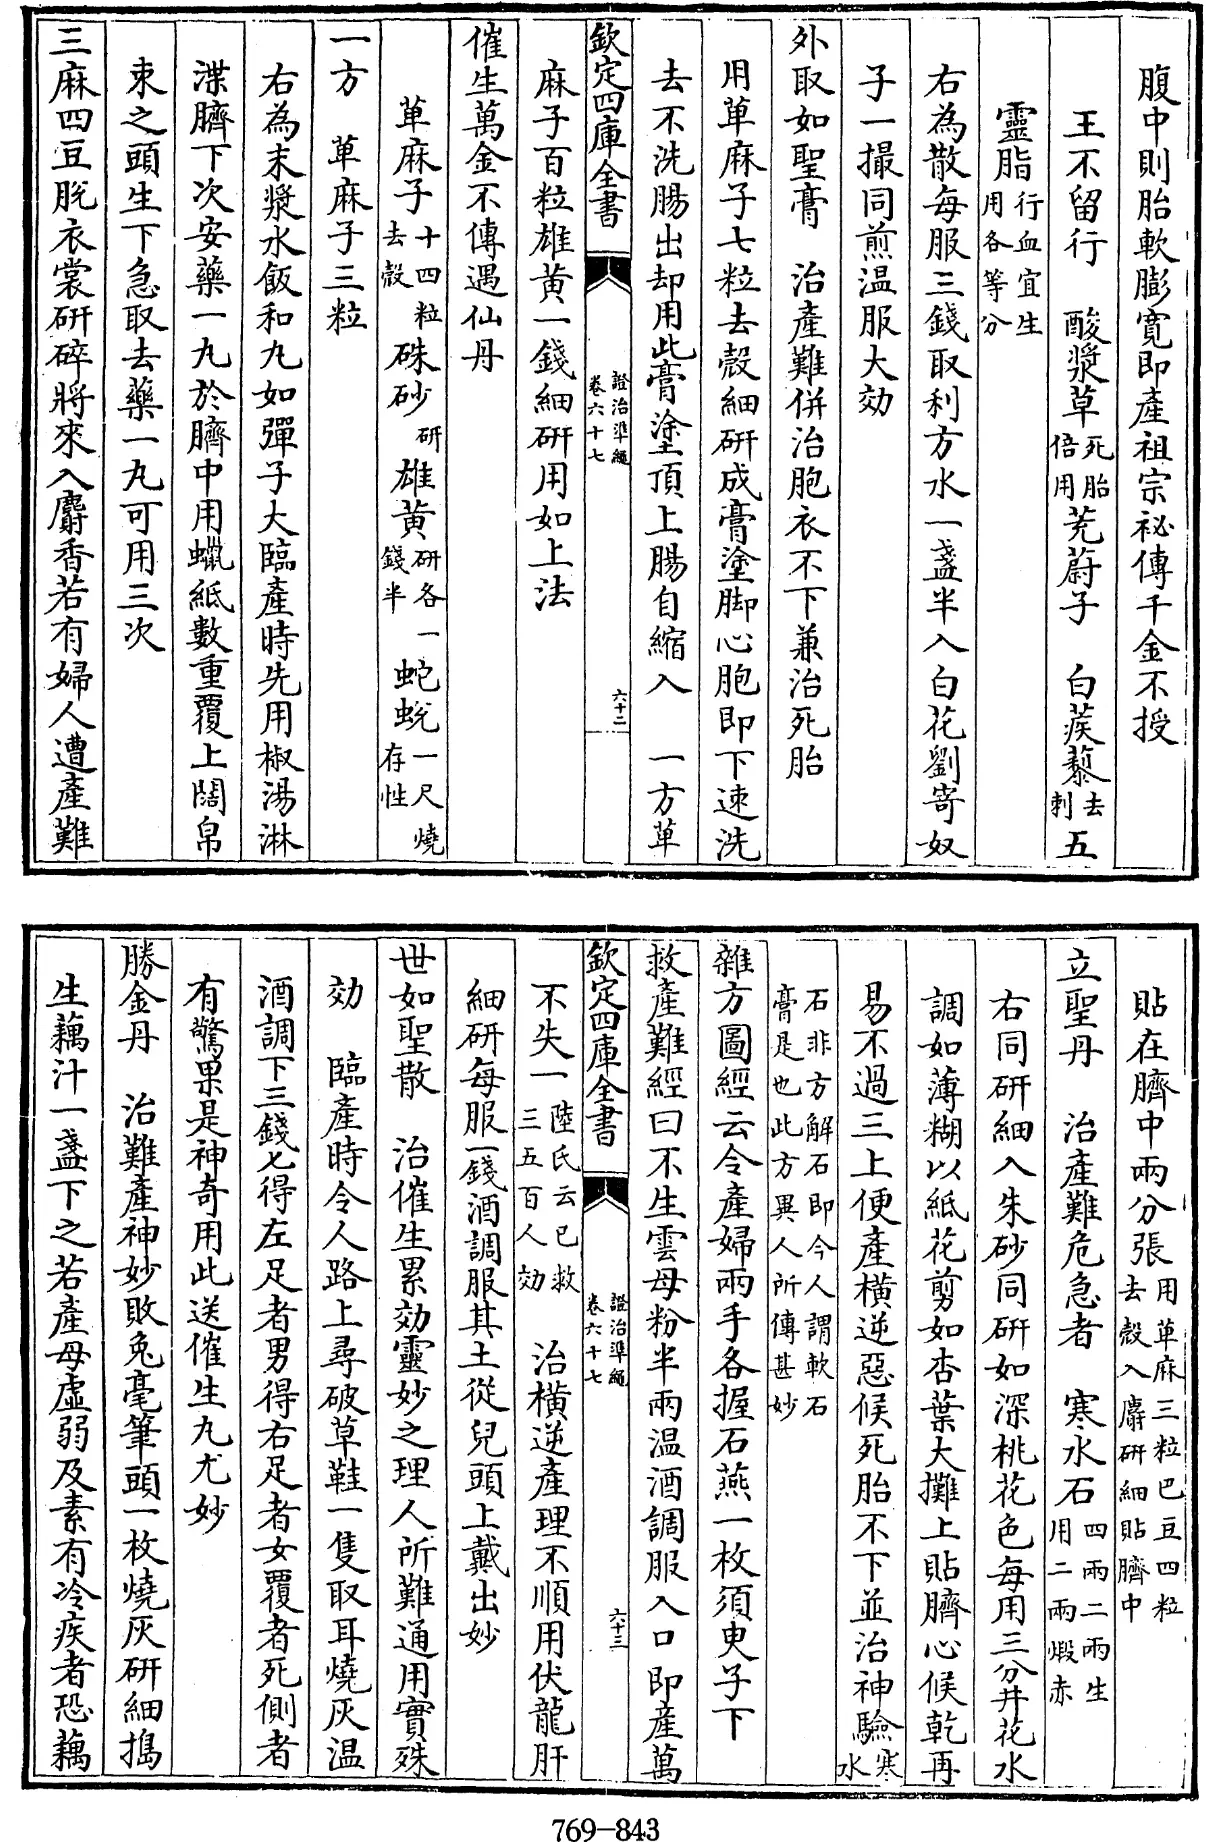 腹中則胎軟膨寛即產祖宗祕傳千金不授
王不留行　酸漿草死胎倍用茺蔚子　白蒺藜去刺五
靈脂行血宜生用各等分
右為散每服三錢取利方水一盞半入白花劉寄奴
子一撮同煎温服大効
外取如聖膏　治產難併治胞衣不下兼治死胎
用萆麻子七粒去殻細研成膏塗脚心胞即下速洗
去不洗腸出却用此膏塗頂上腸自縮入　一方萆
欽定四庫全書　證治準繩卷六十七　六十二
麻子百粒雄黄一錢細研用如上法
催生萬金不傳遇仙丹
萆麻子十四粒去殻　硃砂研　雄黄研各一錢半　蛇蛻一尺燒存性
一方　萆麻子三粒
右為末漿水飯和丸如彈子大臨產時先用椒湯淋
渫臍下次安藥一丸於臍中用蠟紙數重覆上闊帛
束之頭生下急取去藥一丸可用三次
三麻四豆脱衣裳研碎將來入麝香若有婦人遭產難
貼在臍中兩分張用萆麻三粒巴豆四粒去殻入麝研細貼臍中
立聖丹　治產難危急者　寒水石四兩二兩生用二兩煅赤
右同研細入朱砂同研如深桃花色每用三分井花水
調如薄糊以紙花剪如杏葉大攤上貼臍心候乾再
易不過三上便產横逆惡候死胎不下並治神驗寒水
石非方解石即今人謂軟石膏是也此方異人所傳甚妙
雜方圖經云令產婦兩手各握石燕一枚須臾子下
救產難經曰不生雲母粉半兩温酒調服入口即產萬
欽定四庫全書　證治準繩卷六十七　六十三
不失一陸氏云已救三五百人効　治横逆產理不順用伏龍肝
細研每服一錢酒調服其土從兒頭上戴出妙
世如聖散　治催生累効靈妙之理人所難通用實殊
効　臨產時令人路上尋破草鞋一隻取耳燒灰温
酒調下三錢匕得左足者男得右足者女覆者死側者
有驚果是神奇用此送催生丸尤妙
勝金丹　治難產神妙敗兔毫筆頭一枚燒灰研細搗
生藕汁一盞下之若產母虛弱及素有冷疾者恐藕
769-843